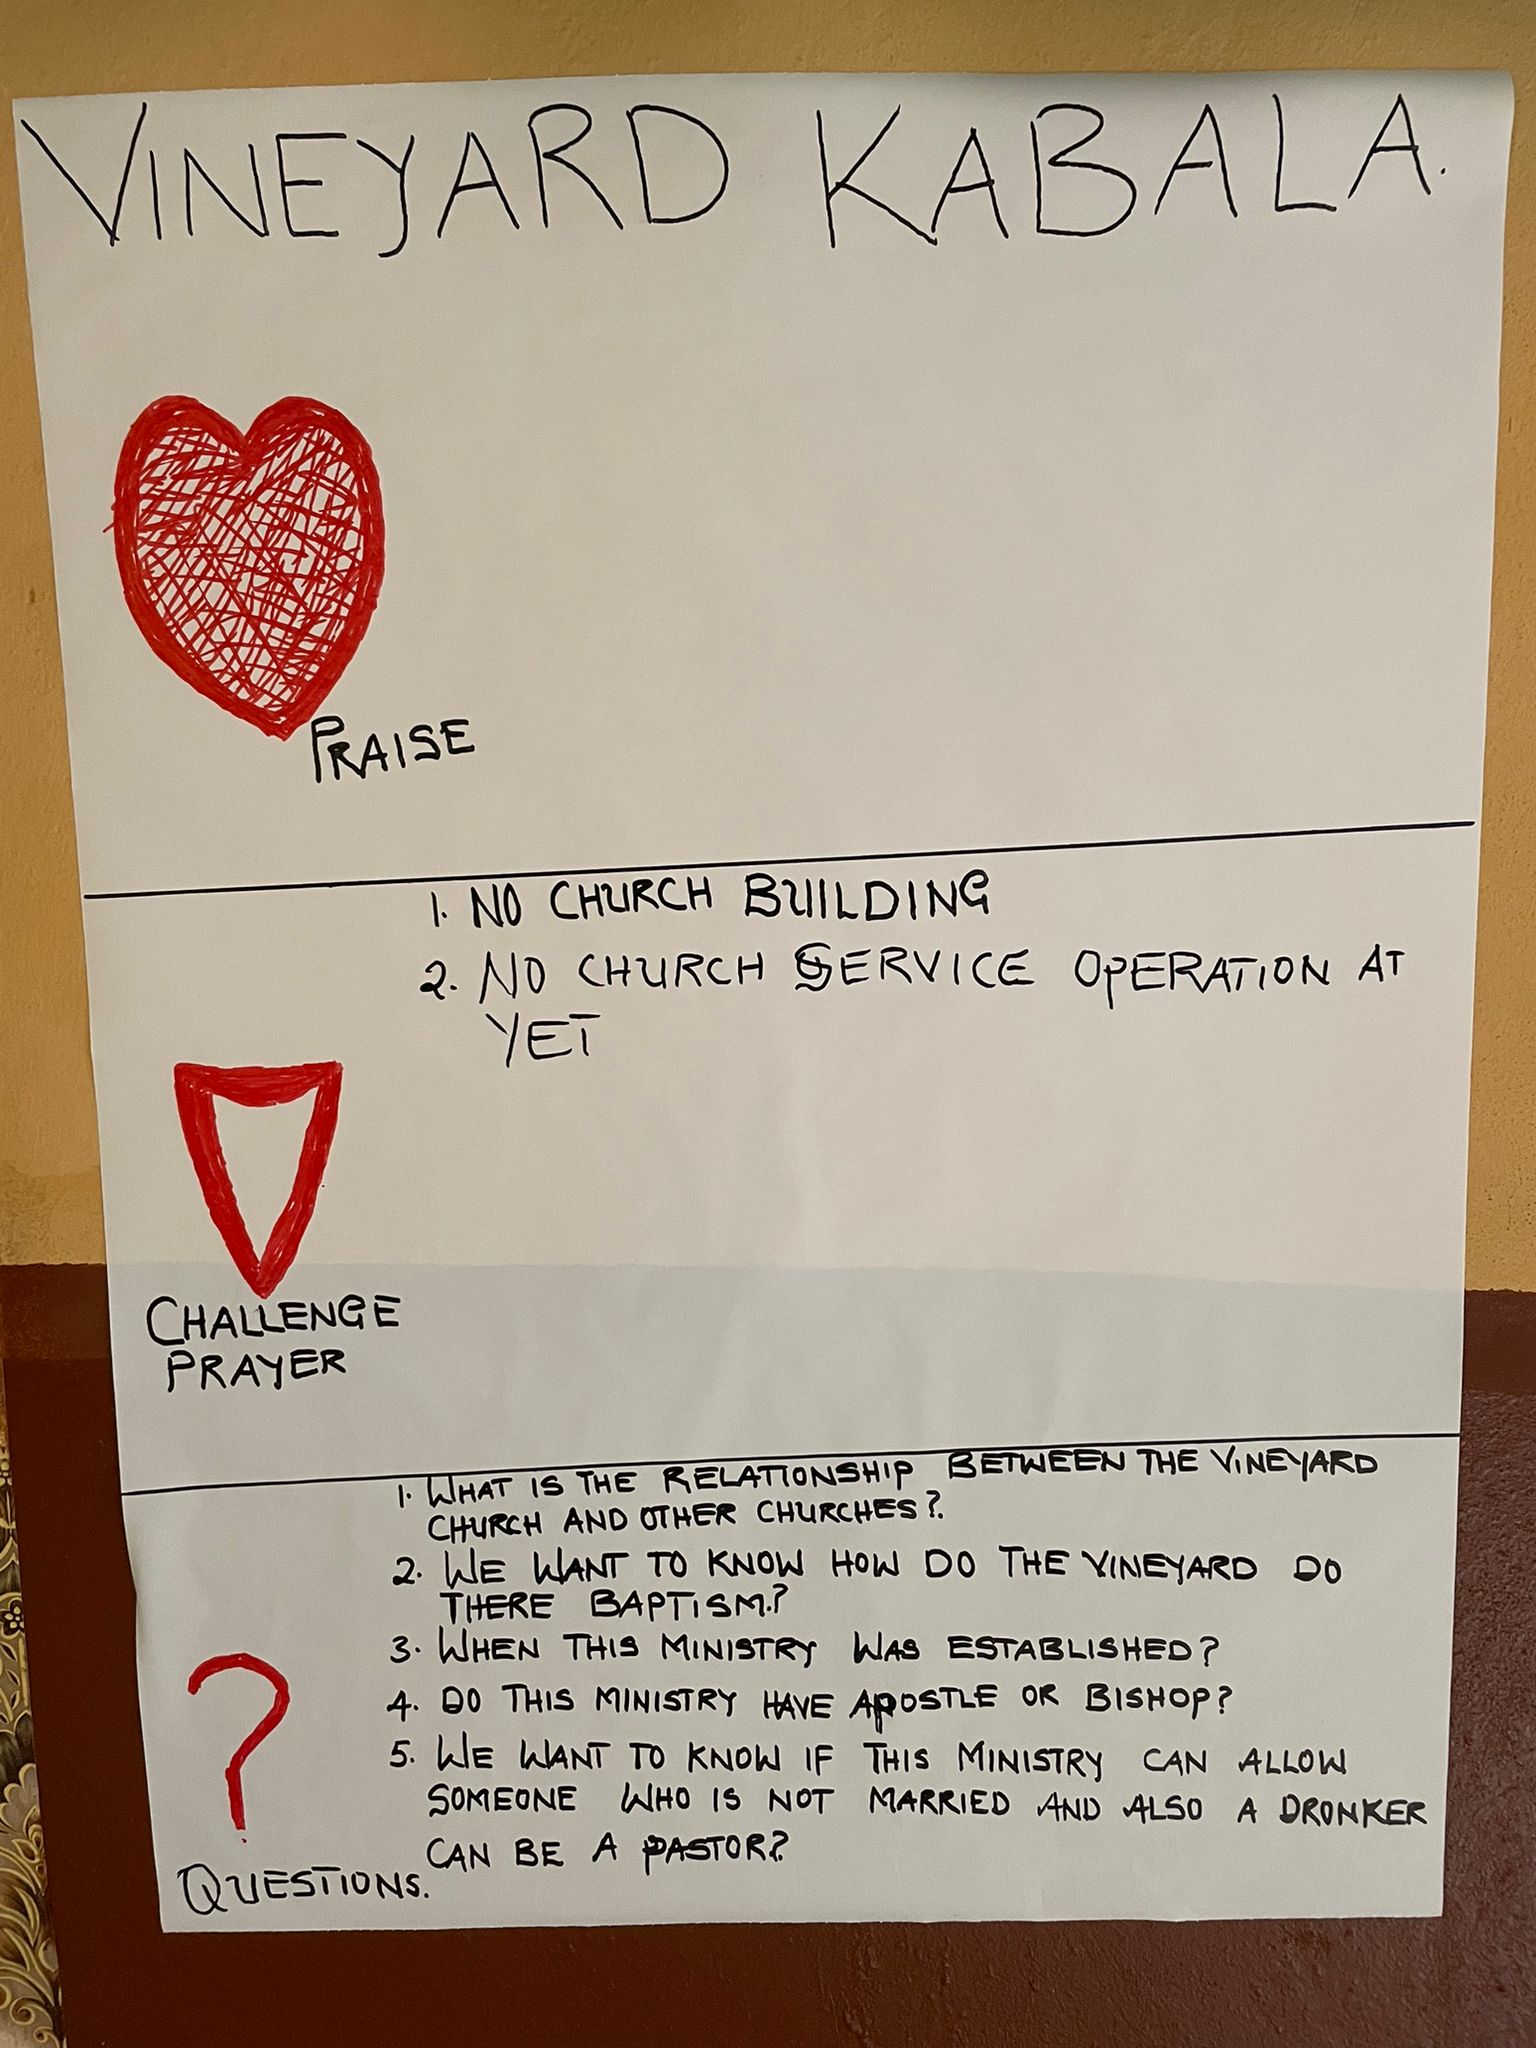 VINEYARD KABALA.
PRAISE
1. NO CHURCH BUILDING
2. NO CHURCH SERVICE OPERATION AT
YET
CHALLENGE
PRAYER
1. WHAT IS THE RELATIONSHIP BETWEEN THE VINEYARD
CHURCH AND OTHER CHURCHES?
2. WE WANT TO KNOW HOW DO THE VINEYARD DO
THERE BAPTISM?
3. WHEN THIS MINISTRY WAS ESTABLISHED?
4. DO THIS MINISTRY HAVE APOSTLE OR BISHOP?
5. WE WANT TO KNOW IF THIS MINISTRY CAN ALLOW
SOMEONE WHO IS NOT MARRIED AND ALSO A DRONKER
CAN BE A PASTOR?
?
QUESTIONS.